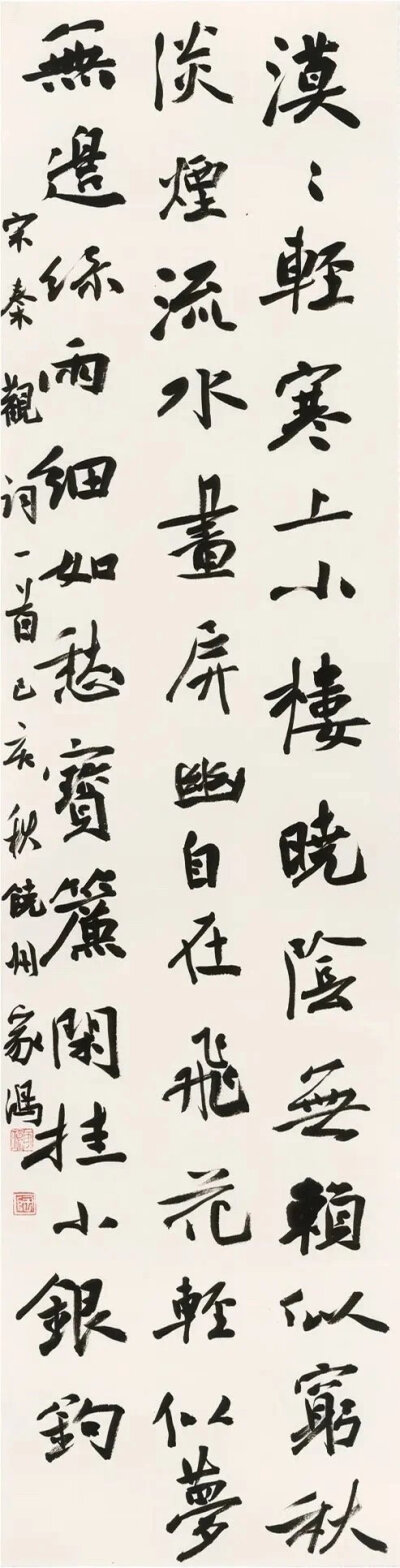 漠〻輕寒上小樓曉陰無賴似窮秋
淡煙流水畫屏幽自在飛花輕似夢
無邊絲雨細如愁寶簾閑挂小銀鉤
宋秦觀詞一首己亥秋饒州家鴻